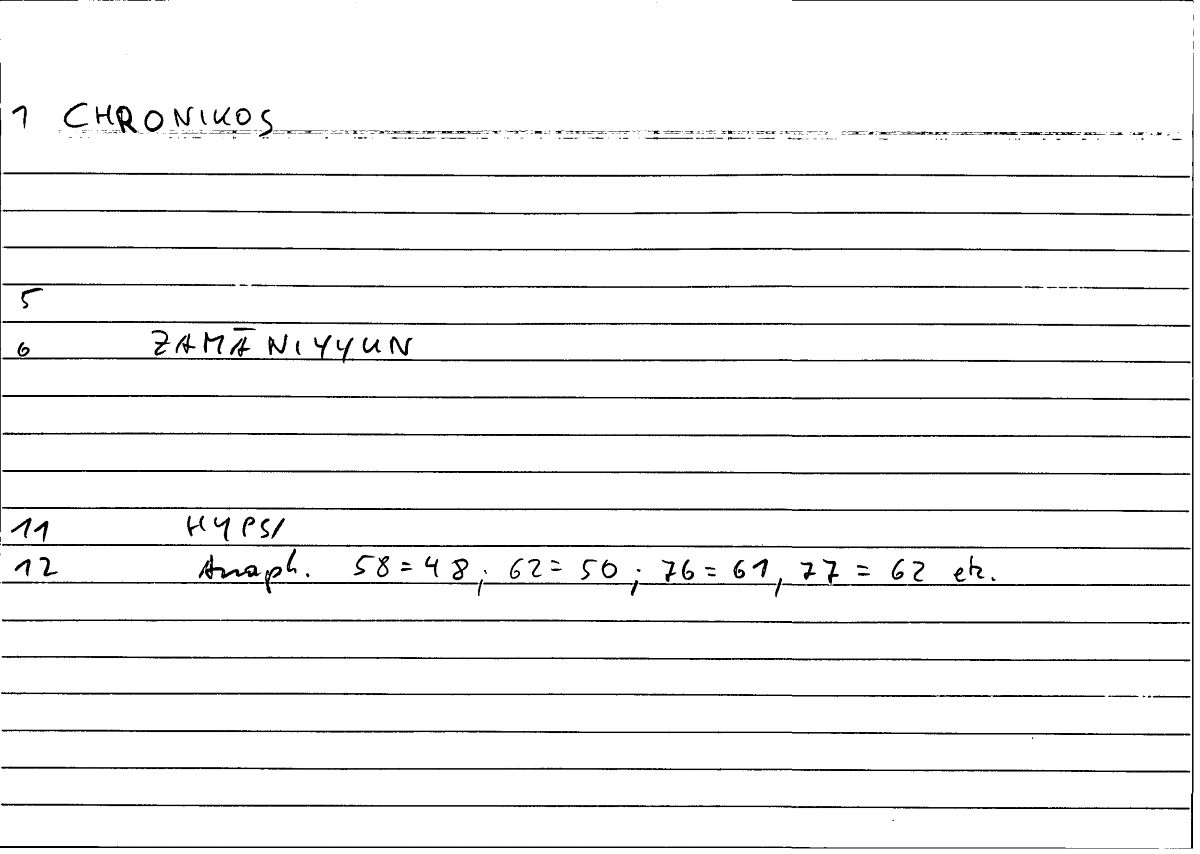 1 CHRONIKOS
5
6 ZAMĀNIYYUN
11 HYPSI
12 Anaph. 58 = 48; 62 = 50; 76 = 61, 77 = 62 etc.